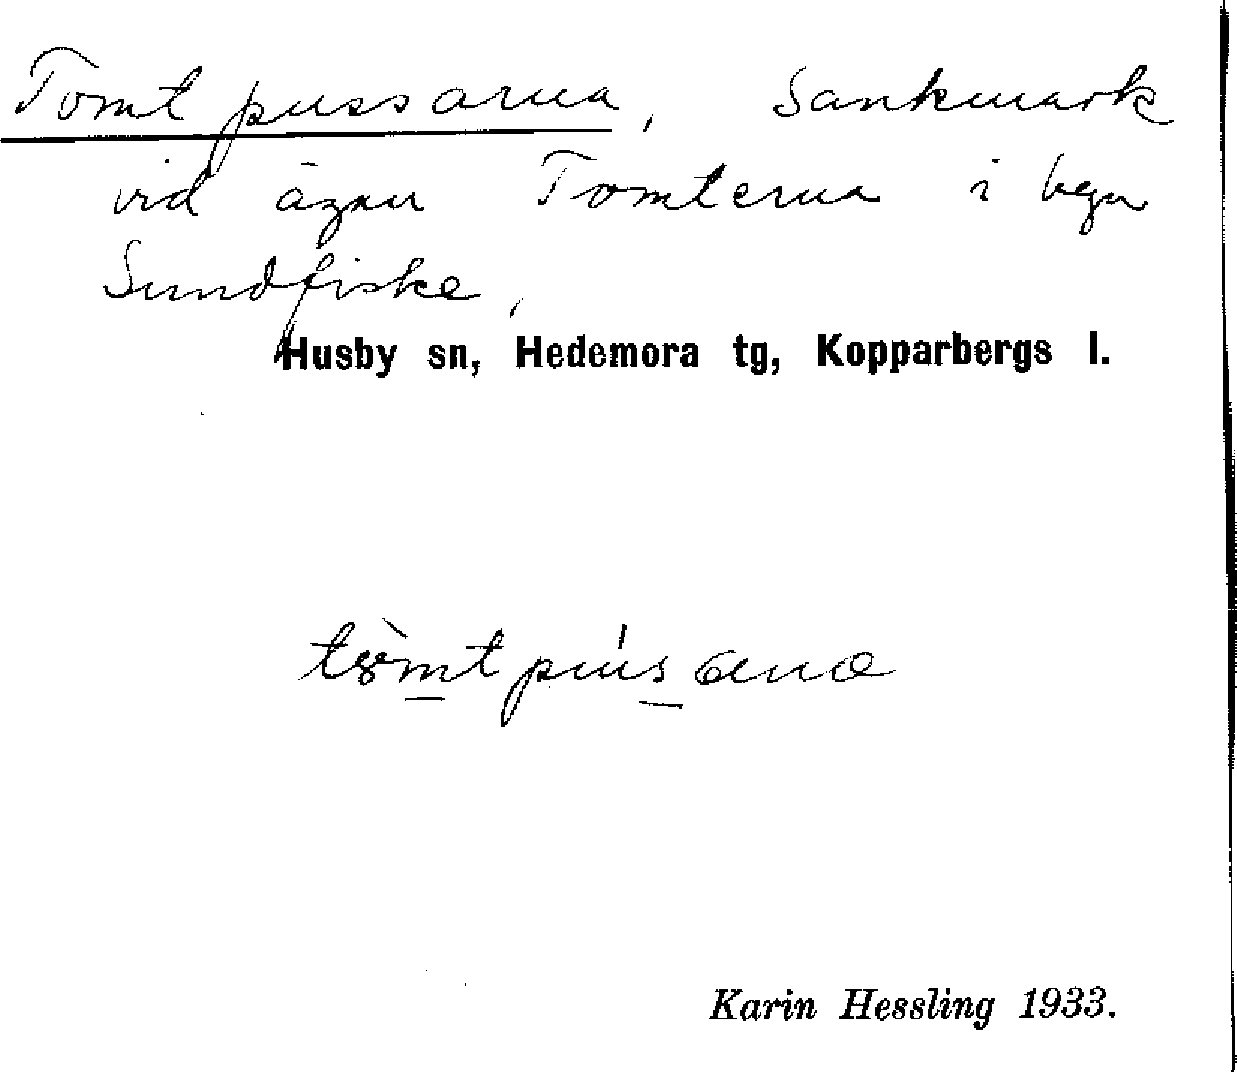 Tomtpussarna, Sankmark
vid ägan Tomterna i byn
Sundfiske,
Husby sn, Hedemora tg, Kopparbergs l.
Karin Hessling 1933.